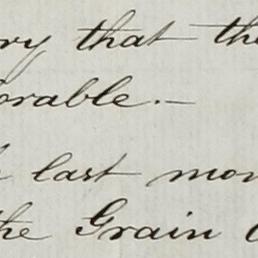 ry that the
orable.—
last mon
the Grain